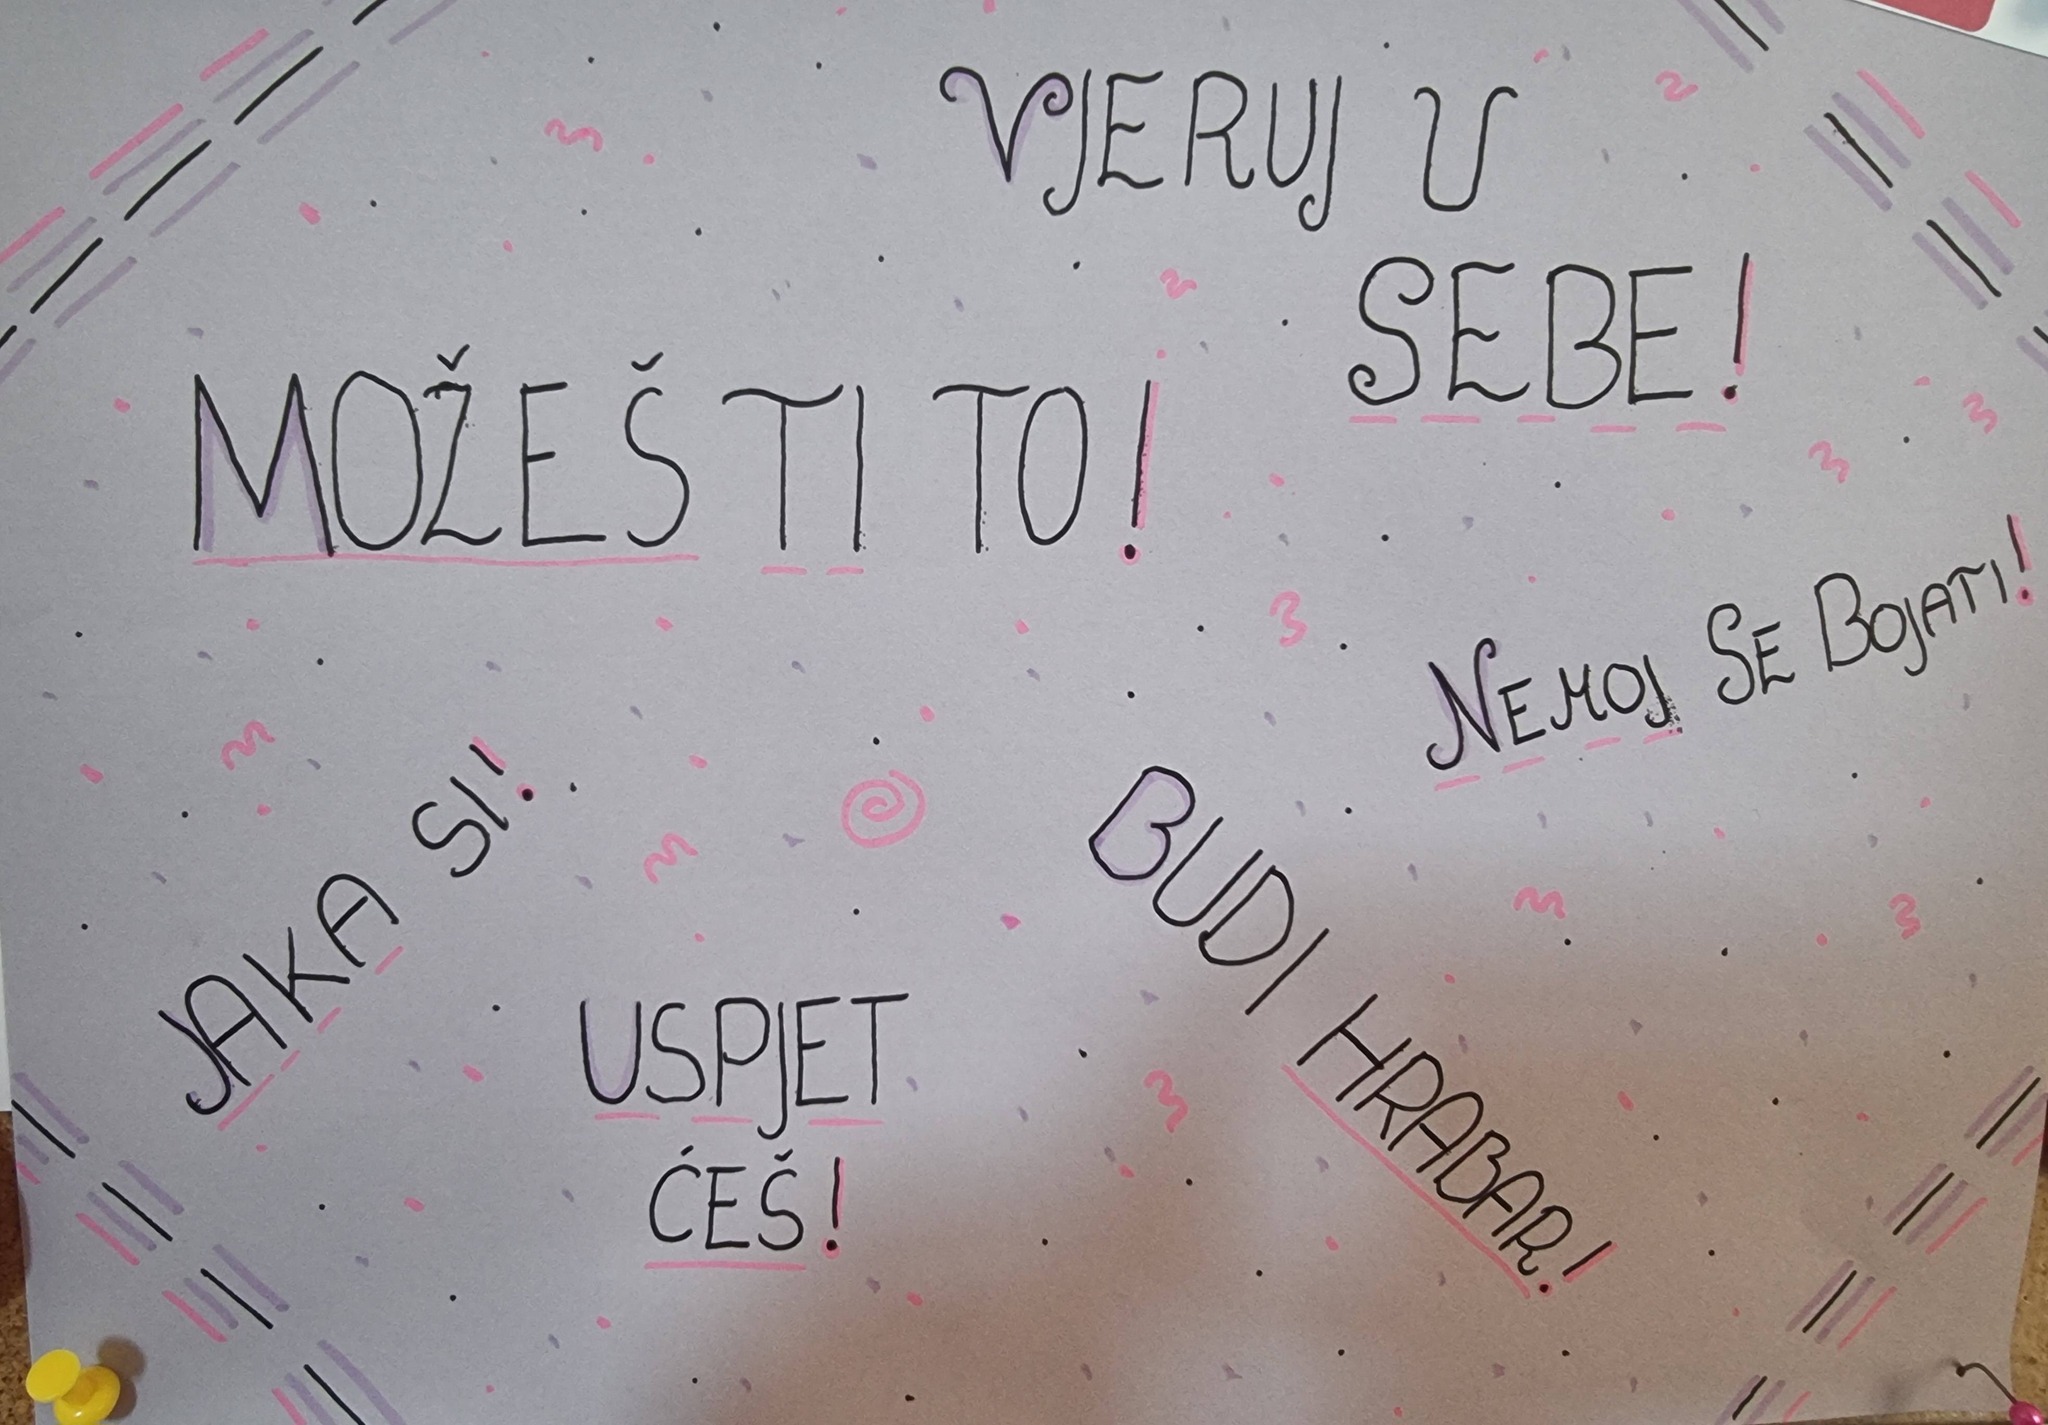 VJERUJ U
SEBE!
MOŽEŠ TI TO!
NEMOJ SE BOJATI!
JAKA SI!
BUDI HRABAR!
USPJET
ĆEŠ!